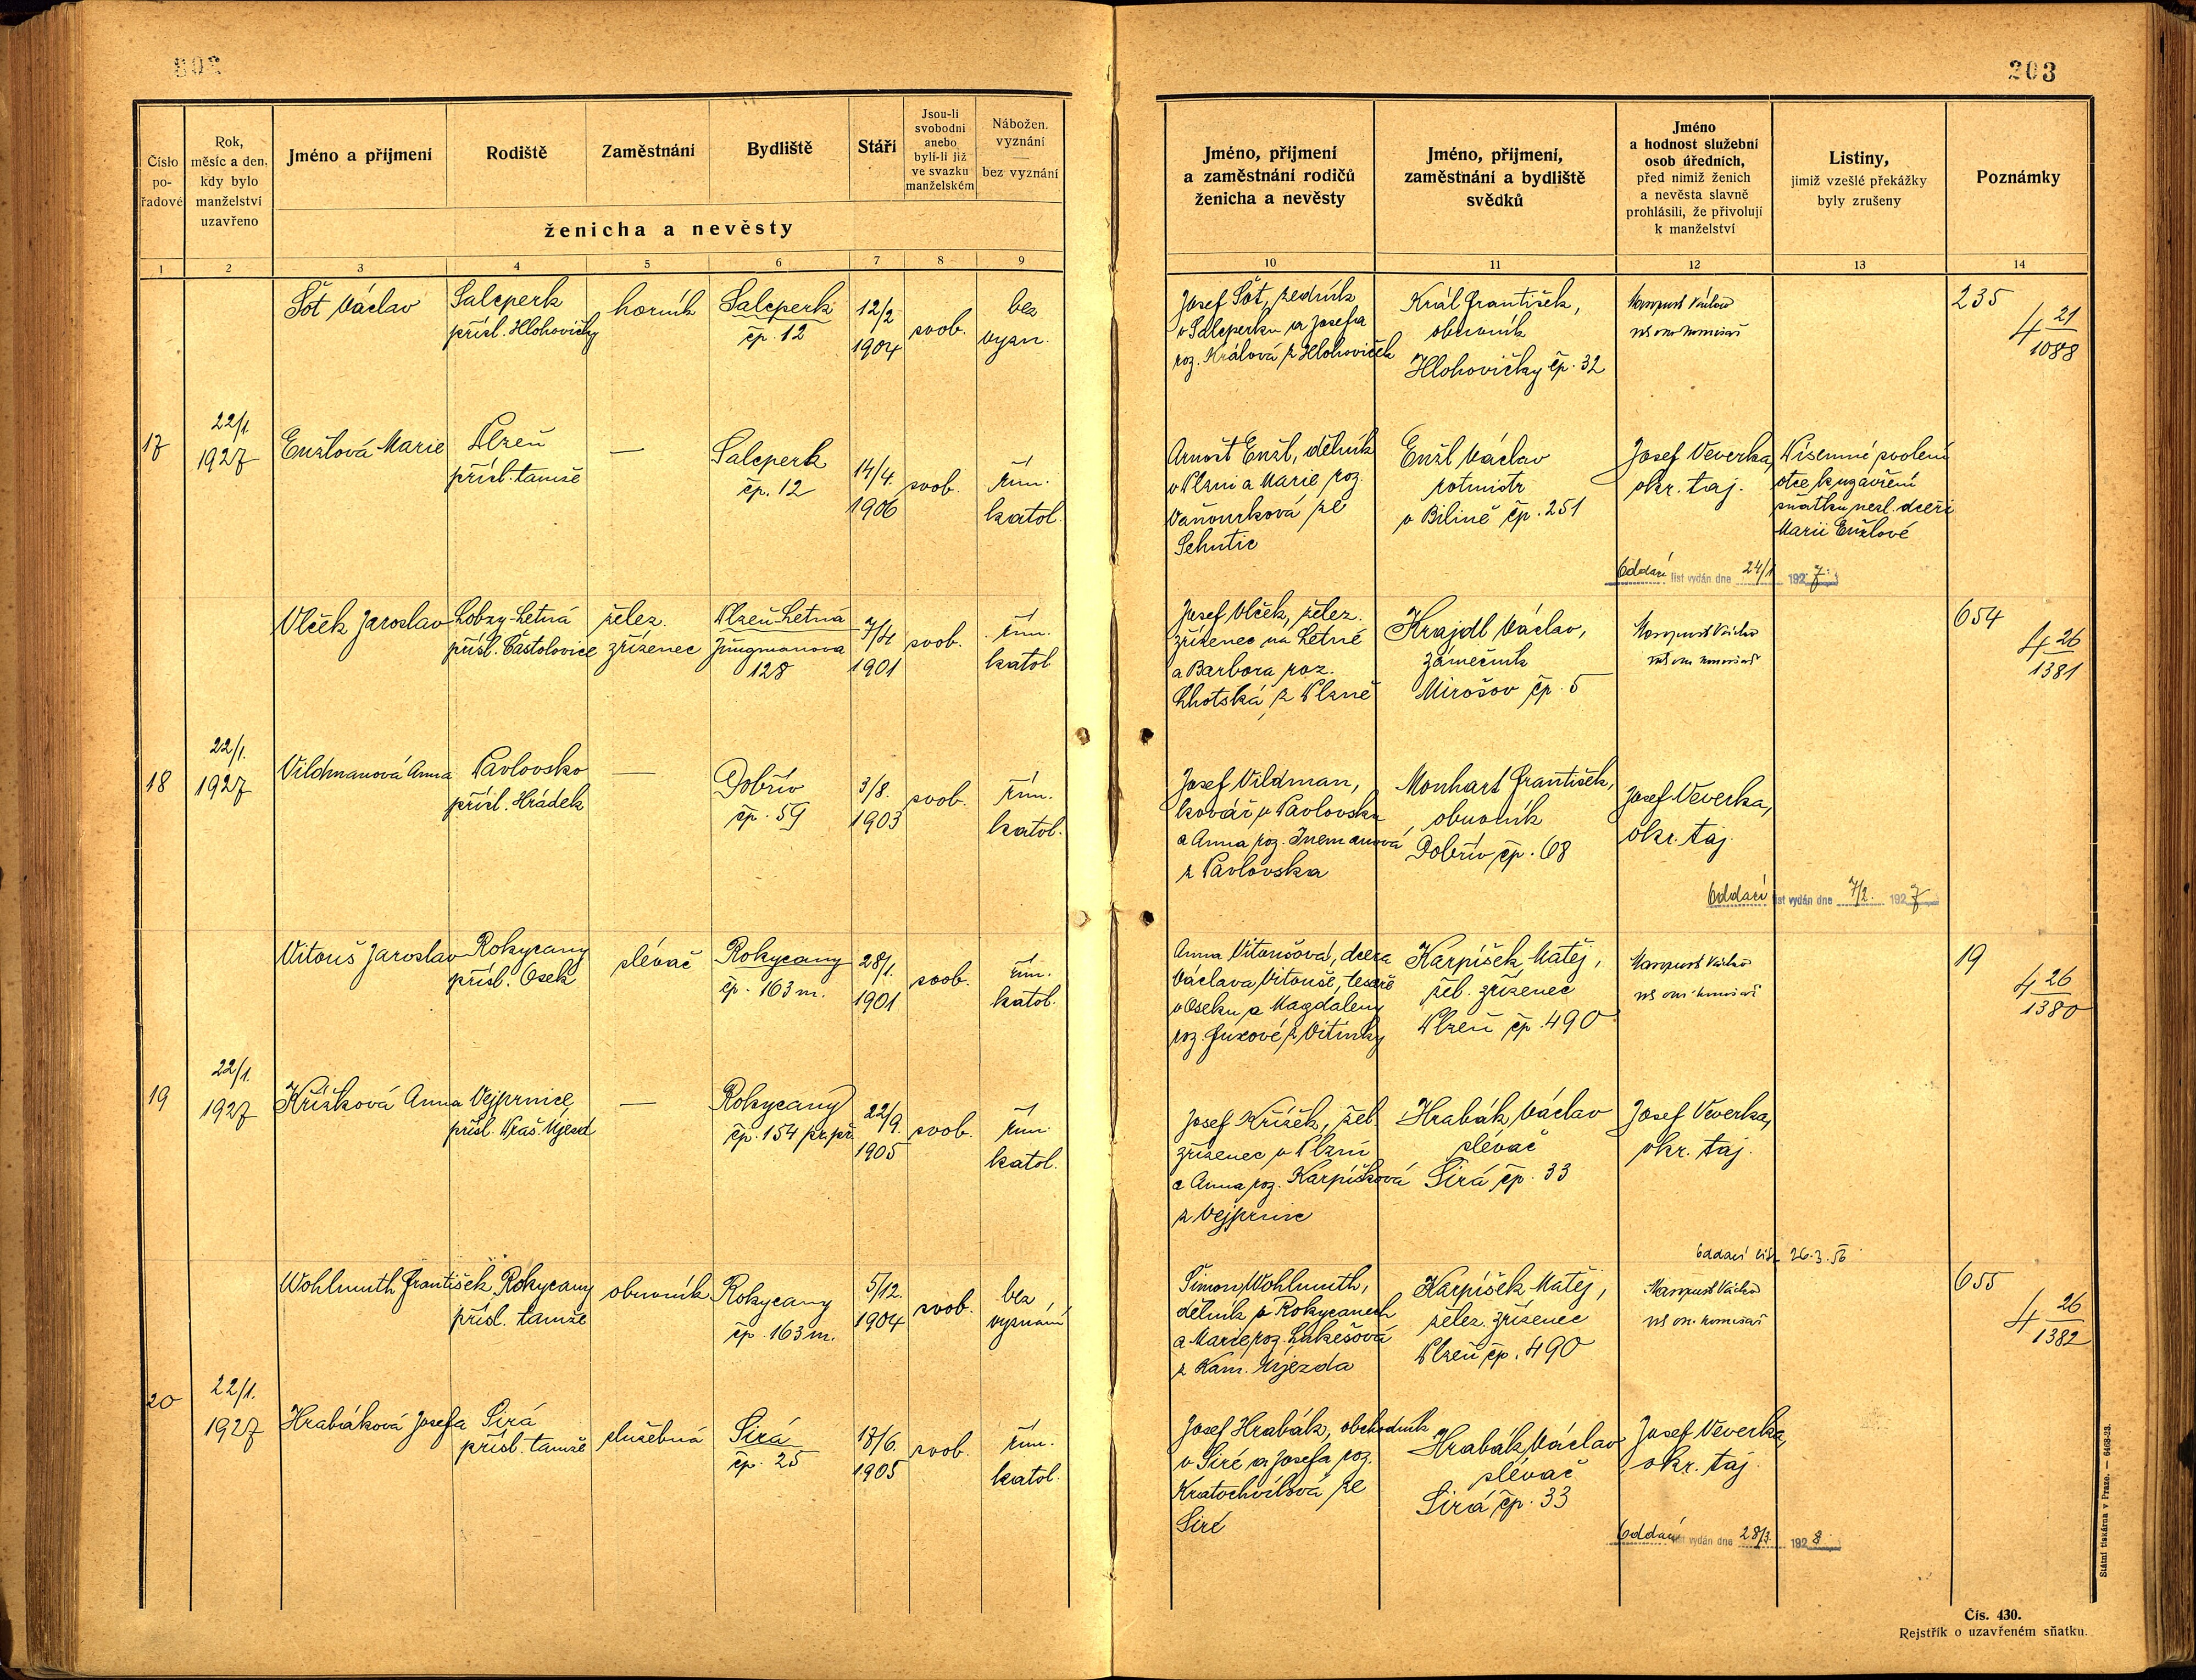 203
Číslo pořadové
Rok, měsíc a den, kdy bylo manželství uzavřeno
Jméno a příjmení
Rodiště
Zaměstnání
Bydliště
Stáří
Jsou-li svobodni anebo byli-li již ve svazku manželském
Nábožen. vyznání
bez vyznání
ženicha a nevěsty
Jméno, příjmení a zaměstnání rodičů ženicha a nevěsty
Jméno, příjmení, zaměstnání a bydliště svědků
Jméno a hodnost služební osob úředních, před nimiž ženich a nevěsta slavně prohlásili, že přivolují k manželství
Listiny, jimiž vzešlé překážky byly zrušeny
Poznámky
1 2 3 4 5 6 7 8 9
10 11 12 13 14
Šot Václav
Salcperk
přísl. Hlohovičky
horník
Salcperk
čp. 12
12/2
1904
svob.
bez
vyzn.
Josef Šot, zedník
v Salcperku a Josefa
roz. Králová z Hlohoviček
Král František,
obuvník
Hlohovičky čp. 32
235
4 21
1088
17
22/1.
1927
Enžlová Marie
Plzeň
přísl. tamže
—
Salcperk
čp. 12
14/4.
1906
svob.
řím.
katol.
Arnošt Enžl, dělník
v Plzni a Marie roz.
Vaňourková ze
Sehutic
Enžl Václav
rotmistr
v Bílině čp. 251
Josef Veverka,
okr. taj.
Písemné svolení
otce k uzavření
sňatku nezl. dceři
Marii Enžlové
Oddací list vydán dne 24/1 1927
Vlček Jaroslav
Lobzy-Letná
přísl. Častolovice
želez.
zřízenec
Plzeň-Letná
Jungmanova
128
7/4
1901
svob.
řím.
katol
Josef Vlček, želez.
zřízenec na Letné
a Barbora roz.
Lhotská z Plzně
Hrajdl Václav,
zámečník
Mirošov čp. 5
654
4 26
1381
18
22/1.
1927
Vildmanová Anna
Pavlovsko
přísl. Hrádek
—
Dobřív
čp. 59
3/8.
1903
svob.
řím.
katol.
Josef Vildman,
kovář v Pavlovsku
a Anna roz. Inemanová
z Pavlovska
Monhart František,
obuvník
Dobřív čp. 68
Josef Veverka,
okr. taj.
Oddací list vydán dne 7/2. 1927
Vitouš Jaroslav
Rokycany
přísl. Osek
slévač
Rokycany
čp. 163 m.
28/1.
1901
svob.
řím.
katol.
Anna Vitoušová, dcera
Václava Vitouše, tesaře
v Oseku a Magdaleny
roz. Fuxové z Vitinky
Karpíšek Matěj,
žel. zřízenec
Plzeň čp. 490
19
4 26
1380
19
22/1.
1927
Křížková Anna
Vejprnice
přísl. Praš. Újezd
—
Rokycany
čp. 154 pr. př.
22/9.
1905
svob.
řím.
katol.
Josef Křížek, žel.
zřízenec v Plzni
a Anna roz. Karpíšková
z Vejprnic
Hrabák Václav
slévač
Sirá čp. 33
Josef Veverka,
okr. taj.
Oddací list 26.3.56
Wohlmuth František
Rokycany
přísl. tamže
obuvník
Rokycany
čp. 163 m.
5/12.
1904
svob.
bez
vyznání
Šimon Wohlmuth,
dělník v Rokycanech
a Marie roz. Lukešová
z Kam. Újezda
Karpíšek Matěj,
želez. zřízenec
Plzeň čp. 490
655
4 26
1382
20
22/1.
1927
Hrabáková Josefa
Sirá
přísl. tamže
služebná
Sirá
čp. 25
17/6.
1905
svob.
řím.
katol.
Josef Hrabák, obchodník
v Siré a Josefa roz.
Kratochvílová ze
Siré
Hrabák Václav
slévač
Sirá čp. 33
Josef Veverka,
okr. taj.
Oddací list vydán dne 28/3. 1928
Státní tiskárna v Praze. — 6468-23.
Čís. 430.
Rejstřík o uzavřeném sňatku.